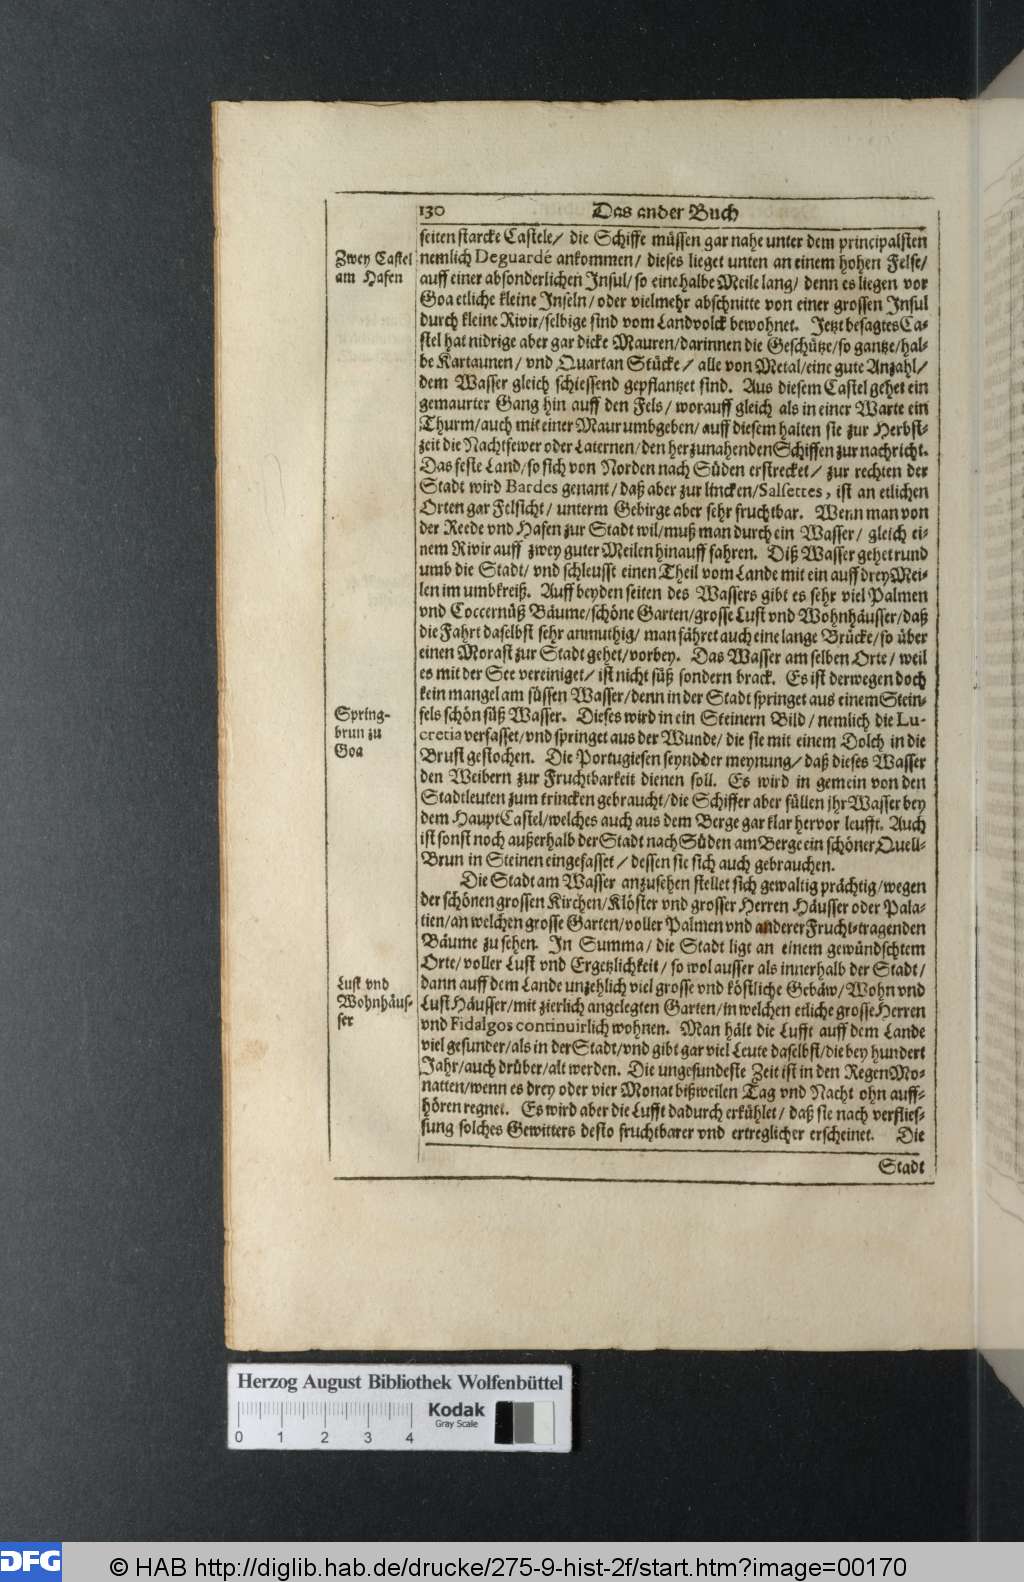 130 Das ander Buch
seiten starcke Castele/ die Schiffe müssen gar nahe unter dem principalsten
Zwey Castel
am Hafen
nemlich Deguarde ankommen/ dieses lieget unten an einem hohen Felse/
auff einer absonderlichen Insul/ so eine halbe Meile lang/ denn es liegen vor
Goa etliche kleine Inseln/ oder vielmehr abschnitte von einer grossen Insul
durch kleine Rivir/ selbige sind vom Landvolck bewohnet. Jetzt besagtes Ca-
stel hat nidrige aber gar dicke Mauren/ darinnen die Geschütze/ so gantze/ hal-
be Kartaunen/ vnd Quartan Stücke/ alle von Metal/ eine gute Anzahl/
dem Wasser gleich schiessend gepflantzet sind. Aus diesem Castel gehet ein
gemaurter Gang hin auff den Fels/ worauff gleich als in einer Warte ein
Thurm/ auch mit einer Maur umbgeben/ auff diesem halten sie zur Herbst-
zeit die Nachtfewer oder Laternen/ den herzunahenden Schiffen zur nachricht.
Das feste Land/ so sich von Norden nach Süden erstrecket/ zur rechten der
Stadt wird Bardes genant/ daß aber zur lincken/ Salsettes, ist an etlichen
Orten gar Felsicht/ unterm Gebirge aber sehr fruchtbar. Wenn man von
der Reede vnd Hafen zur Stadt wil/ muß man durch ein Wasser/ gleich ei-
nem Rivir auff zwey guter Meilen hinauff fahren. Diß Wasser gehet rund
umb die Stadt/ vnd schleusst einen Theil vom Lande mit ein auff drey Mei-
len im umbkreiß. Auff beyden seiten des Wassers gibt es sehr viel Palmen
vnd Coccernüß Bäume/ schöne Garten/ grosse Lust vnd Wohnhäusser/ daß
die Fahrt daselbst sehr anmuthig/ man fähret auch eine lange Brücke/ so über
einen Morast zur Stadt gehet/ vorbey. Das Wasser am selben Orte/ weil
es mit der See vereiniget/ ist nicht süß sondern brack. Es ist derwegen doch
kein mangel am süssen Wasser/ denn in der Stadt springet aus einem Stein-
Spring-
brun zu
Goa
fels schön süß Wasser. Dieses wird in ein Steinern Bild/ nemlich die Lu-
cretia verfasset/ vnd springet aus der Wunde/ die sie mit einem Dolch in die
Brust gestochen. Die Portugiesen seynd der meynung/ daß dieses Wasser
den Weibern zur Fruchtbarkeit dienen soll. Es wird in gemein von den
Stadtleuten zum trincken gebraucht/ die Schiffer aber füllen jhr Wasser bey
dem Haupt Castel/ welches auch aus dem Berge gar klar hervor leufft. Auch
ist sonst noch außerhalb der Stadt nach Süden am Berge ein schöner Quell-
Brun in Steinen eingefasset/ dessen sie sich auch gebrauchen.
Die Stadt am Wasser anzusehen stellet sich gewaltig prächtig/ wegen
der schönen grossen Kirchen/ Klöster vnd grosser Herren Häusser oder Pala-
tien/ an welchen grosse Garten/ voller Palmen vnd anderer Frucht-tragenden
Bäume zu sehen. In Summa/ die Stadt ligt an einem gewündschtem
Orte/ voller Lust vnd Ergetzlichkeit/ so wol ausser als innerhalb der Stadt/
Lust vnd
Wohnhäus-
ser
dann auff dem Lande unzehlich viel grosse vnd köstliche Gebäw/ Wohn vnd
Lust Häusser/ mit zierlich angelegten Garten/ in welchen etliche grosse Herren
vnd Fidalgos continuirlich wohnen. Man hält die Lufft auff dem Lande
viel gesunder/ als in der Stadt/ vnd gibt gar viel Leute daselbst/ die bey hundert
Jahr/ auch drüber/ alt werden. Die ungesundeste Zeit ist in den Regen Mo-
natten/ wenn es drey oder vier Monat bißweilen Tag vnd Nacht ohn auff-
hören regnet. Es wird aber die Lufft dadurch erkühlet/ daß sie nach verflies-
sung solches Gewitters desto fruchtbarer vnd ertreglicher erscheinet. Die
Stadt
Herzog August Bibliothek Wolfenbüttel
Kodak
Gray Scale
0 1 2 3 4
DFG
© HAB http://diglib.hab.de/drucke/275-9-hist-2f/start.htm?image=00170